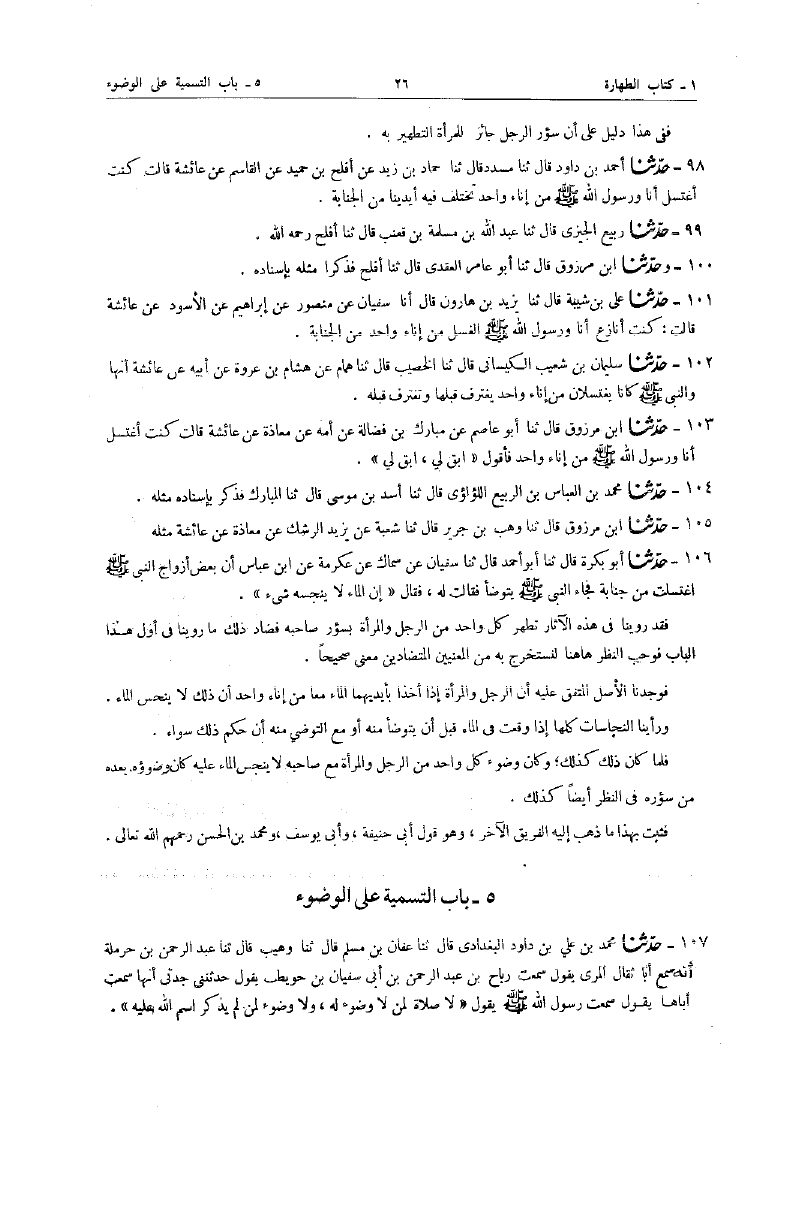 ١ ـ كتاب الطهارة ٢٦ ٥ ـ باب التسمية على الوضوء
ففى هذا دليل على أن سؤر الرجل جائز للمرأة التطهير به .
٩٨ ـ حدّثنا أحمد بن داود قال ثنا مسدد قال ثنا حماد بن زيد عن أفلح بن حميد عن القاسم عن عائشة قالت كنت
أغتسل أنا ورسول الله ﷺ من إناء واحد تختلف فيه أيدينا من الجنابة .
٩٩ ـ حدّثنا ربيع الجيزى قال ثنا عبد الله بن مسلمة بن قعنب قال ثنا أفلح رحمه الله .
١٠٠ ـ وحدّثنا ابن مرزوق قال ثنا أبو عامر العقدى قال ثنا أفلح فذكرا مثله بإسناده .
١٠١ ـ حدّثنا على بن شيبة قال ثنا يزيد بن هارون قال أنا سفيان عن منصور عن إبراهيم عن الأسود عن عائشة
قالت : كنت أنازع أنا ورسول الله ﷺ الغسل من إناء واحد من الجنابة .
١٠٢ ـ حدّثنا سليمان بن شعيب الكيسانى قال ثنا الخصيب قال ثنا همام عن هشام بن عروة عن أبيه عن عائشة أنها
والنبى ﷺ كانا يغتسلان من إناء واحد يغترف قبلها وتغترف قبله .
١٠٣ ـ حدّثنا ابن مرزوق قال ثنا أبو عاصم عن مبارك بن فضالة عن أمه عن معاذة عن عائشة قالت كنت أغتسل
أنا ورسول الله ﷺ من إناء واحد فأقول « ابق لي ، ابق لي » .
١٠٤ ـ حدّثنا محمد بن العباس بن الربيع اللؤلؤى قال ثنا أسد بن موسى قال ثنا المبارك فذكر بإسناده مثله .
١٠٥ ـ حدّثنا ابن مرزوق قال ثنا وهب بن جرير قال ثنا شعبة عن يزيد الرشك عن معاذة عن عائشة مثله
١٠٦ ـ حدّثنا أبو بكرة قال ثنا أبو أحمد قال ثنا سفيان عن سماك عن عكرمة عن ابن عباس أن بعض أزواج النبى ﷺ
اغتسلت من جنابة فجاء النبى ﷺ يتوضأ فقالت له ، فقال « إن الماء لا ينجسه شىء » .
فقد روينا فى هذه الآثار تطهر كل واحد من الرجل والمرأة بسؤر صاحبه فضاد ذلك ما روينا فى أول هـذا
الباب فوجب النظر هاهنا لنستخرج به من المعنيين المتضادين معنى صحيحاً .
فوجدنا الأصل المتفق عليه أن الرجل والمرأة إذا أخذا بأيديهما الماء معا من إناء واحد أن ذلك لا ينجس الماء .
ورأينا النجاسات كلها إذا وقعت فى الماء قبل أن يتوضأ منه أو مع التوضي منه أن حكم ذلك سواء .
فلما كان ذلك كذلك؛ وكان وضوء كل واحد من الرجل والمرأة مع صاحبه لا ينجس الماء عليه كان وضوؤه بعده
من سؤره فى النظر أيضاً كذلك .
فثبت بهذا ما ذهب إليه الفريق الآخر ، وهو قول أبى حنيفة ، وأبى يوسف ، ومحمد بن الحسن رحمهم الله تعالى .
٥ ـ باب التسمية على الوضوء
١٠٧ ـ حدّثنا محمد بن علي بن داود البغدادى قال ثنا عفان بن مسلم قال ثنا وهيب قال ثنا عبد الرحمن بن حرملة
أنه سمع أبا ثفال المرى يقول سمعت رباح بن عبد الرحمن بن أبى سفيان بن حويطب يقول حدثتنى جدتى أنها سمعت
أباهـا يقـول سمعت رسول الله ﷺ يقول « لا صلاة لمن لا وضوء له ، ولا وضوء لمن لم يذكر اسم الله عليه » .